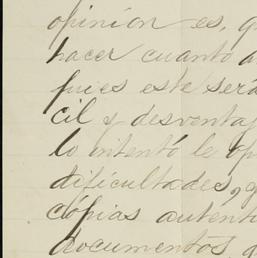 opinión es, q
hacer cuanto a
pues este será
cil y desventaj
lo intentó le op
dificultades, y
cópias autent
documentos, q